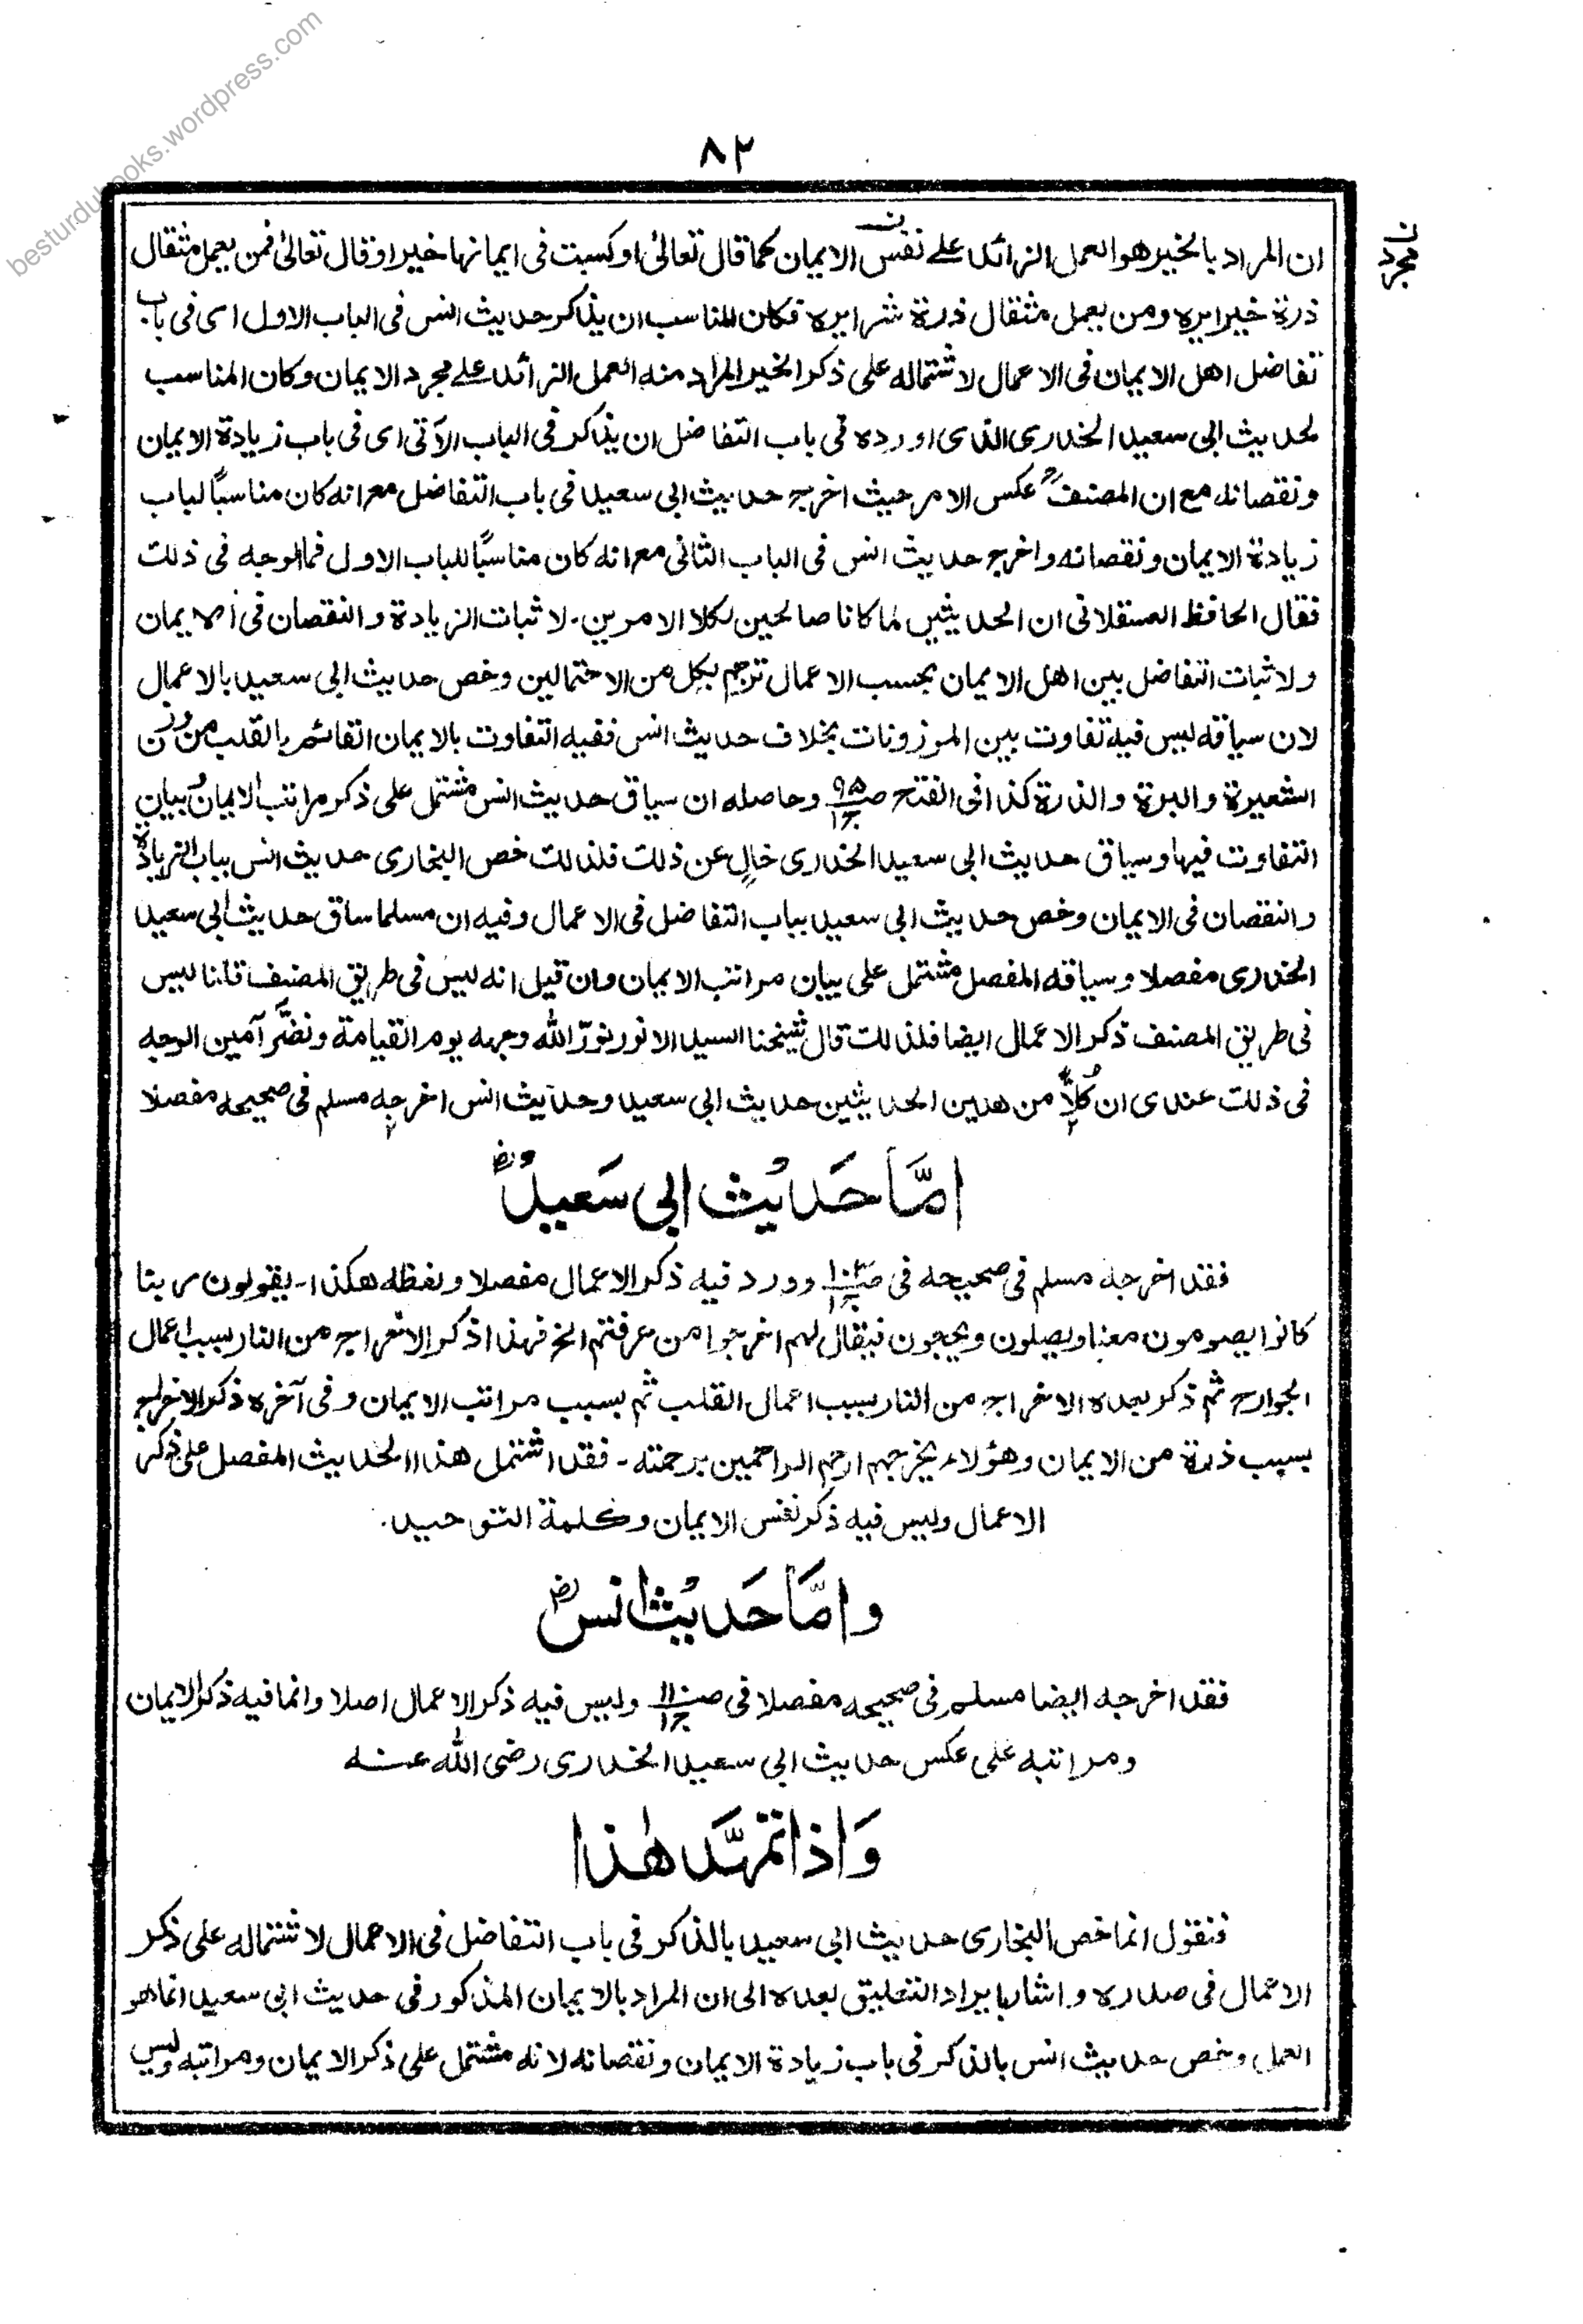 besturdubooks.wordpress.com
٨٢
ان المراد بالخير هو العمل الزائد على نفس الايمان كما قال تعالىٰ او كسبت فى ايمانها خيرا وقال تعالىٰ فمن يعمل مثقال
ن مجرد
ذرة خيرا يره ومن يعمل مثقال ذرة شرا يره فكان المناسب ان يذكر حديث انس فى الباب الاول اى فى باب
تفاضل اهل الايمان فى الاعمال لاشتماله على ذكر الخير المراد منه العمل الزائد على مجرد الايمان وكان المناسب
لحديث ابى سعيد الخدرى الذى اورده فى باب التفاضل ان يذكر فى الباب الآتى اى فى باب زيادة الايمان
ونقصانه مع ان المصنفؒ عكس الامر حيث اخرج حديث ابى سعيد فى باب التفاضل مع انه كان مناسبًا لباب
زيادة الايمان ونقصانه واخرج حديث انس فى الباب الثانى مع انه كان مناسبًا للباب الاول فما الوجه فى ذلك
فقال الحافظ العسقلانى ان الحديثين لما كانا صالحين لكلا الامرين۔ لاثبات الزيادة والنقصان فى الايمان
ولاثبات التفاضل بين اهل الايمان بحسب الاعمال ترجم بكل من الاحتمالين وخص حديث ابى سعيد بالاعمال
لان سياقه ليس فيه تفاوت بين الموزونات بخلاف حديث انس ففيه التفاوت بالايمان القائم بالقلب من وزن
الشعيرة والبرة والذرة كذا فى الفتح ص ٩٥ ج ١ وحاصله ان سياق حديث انس مشتمل على ذكر مراتب الايمان وبيان
التفاوت فيها وسياق حديث ابى سعيد الخدرى خالٍ عن ذلك فلذلك خص البخارى حديث انس بباب الزيادة
والنقصان فى الايمان وخص حديث ابى سعيد بباب التفاضل فى الاعمال وفيه ان مسلما ساق حديث ابى سعيد
الخدرى مفصلا وسياقه المفصل مشتمل على بيان مراتب الايمان وان قيل انه ليس فى طريق المصنف قلنا ليس
فى طريق المصنف ذكر الاعمال ايضا فلذلك قال شيخنا السيد الانور نوّر الله وجهه يوم القيامة ونضّر آمين الوجه
فى ذلك عندى ان كُلاًّ من هذين الحديثين حديث ابى سعيد وحديث انس اخرجه مسلم فى صحيحه مفصلا
امَّا حَديْث ابى سَعيدؓ
فقد اخرجه مسلم فى صحيحه فى ص ١٠٣ ج ١ وورد فيه ذكر الاعمال مفصلا ولفظه هكذا۔ يقولون ربنا
كانوا يصومون معنا ويصلون ويحجون فيقال لهم اخرجوا من عرفتم الخ فهذا ذكر الاخراج من النار بسبب اعمال
الجوارح ثم ذكر بعده الاخراج من النار بسبب اعمال القلب ثم بسبب مراتب الايمان وفى آخره ذكر الاخراج
بسبب ذرة من الايمان وهؤلاء يخرجهم ارحم الراحمين برحمته ۔ فقد اشتمل هذا الحديث المفصل على ذكر
الاعمال وليس فيه ذكر نفس الايمان وكلمة التوحيد.
وامَّا حَديْث انسؓ
فقد اخرجه ايضا مسلم فى صحيحه مفصلا فى ص ١١٠ ج ١ وليس فيه ذكر الاعمال اصلا وانما فيه ذكر الايمان
ومراتبه على عكس حديث ابى سعيد الخدرى رضى الله عنه
وَاذا تمهّدَ هٰذا
فنقول انما خص البخارى حديث ابى سعيد بالذكر فى باب التفاضل فى الاعمال لاشتماله على ذكر
الاعمال فى صدره واشار بايراد التعليق بعده الى ان المراد بالايمان المذكور فى حديث ابى سعيد انما هو
العمل وخص حديث انس بالذكر فى باب زيادة الايمان ونقصانه لانه مشتمل على ذكر الايمان ومراتبه وليس